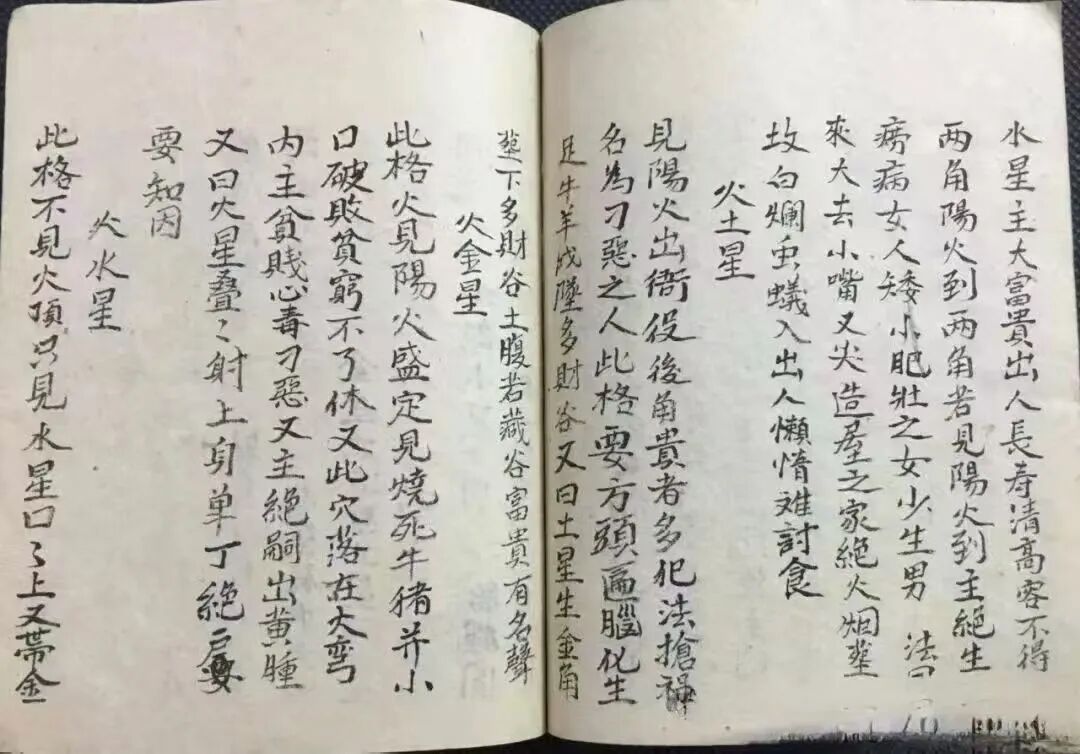 水星主大富貴出人長寿清高容不得
两角陽火到两角若見陽火到主絶生
痨病女人矮小肥壯之女少生男　法曰
來大去小嘴又尖造屋之家絶火烟塟
坟白爛虫蟻入出人懒惰难討食
火土星
見陽火出衙役後角貴者多犯法搶禍
名為刁惡之人此格要方頭匾腦化生
是牛羊戊墜多財谷又曰土星生金角
塟下多財谷土腹若藏谷富貴有名聲
火金星
此格火見陽火盛定見燒死牛猪并小
口破敗貧窮不了休又此穴落在大弯
内主貧賎心毒刁惡又主絶嗣出黄腫
又曰火星叠〻射上身单丁絶户
要知因
火水星
此格不見火頂只見水星口〻上又帶金